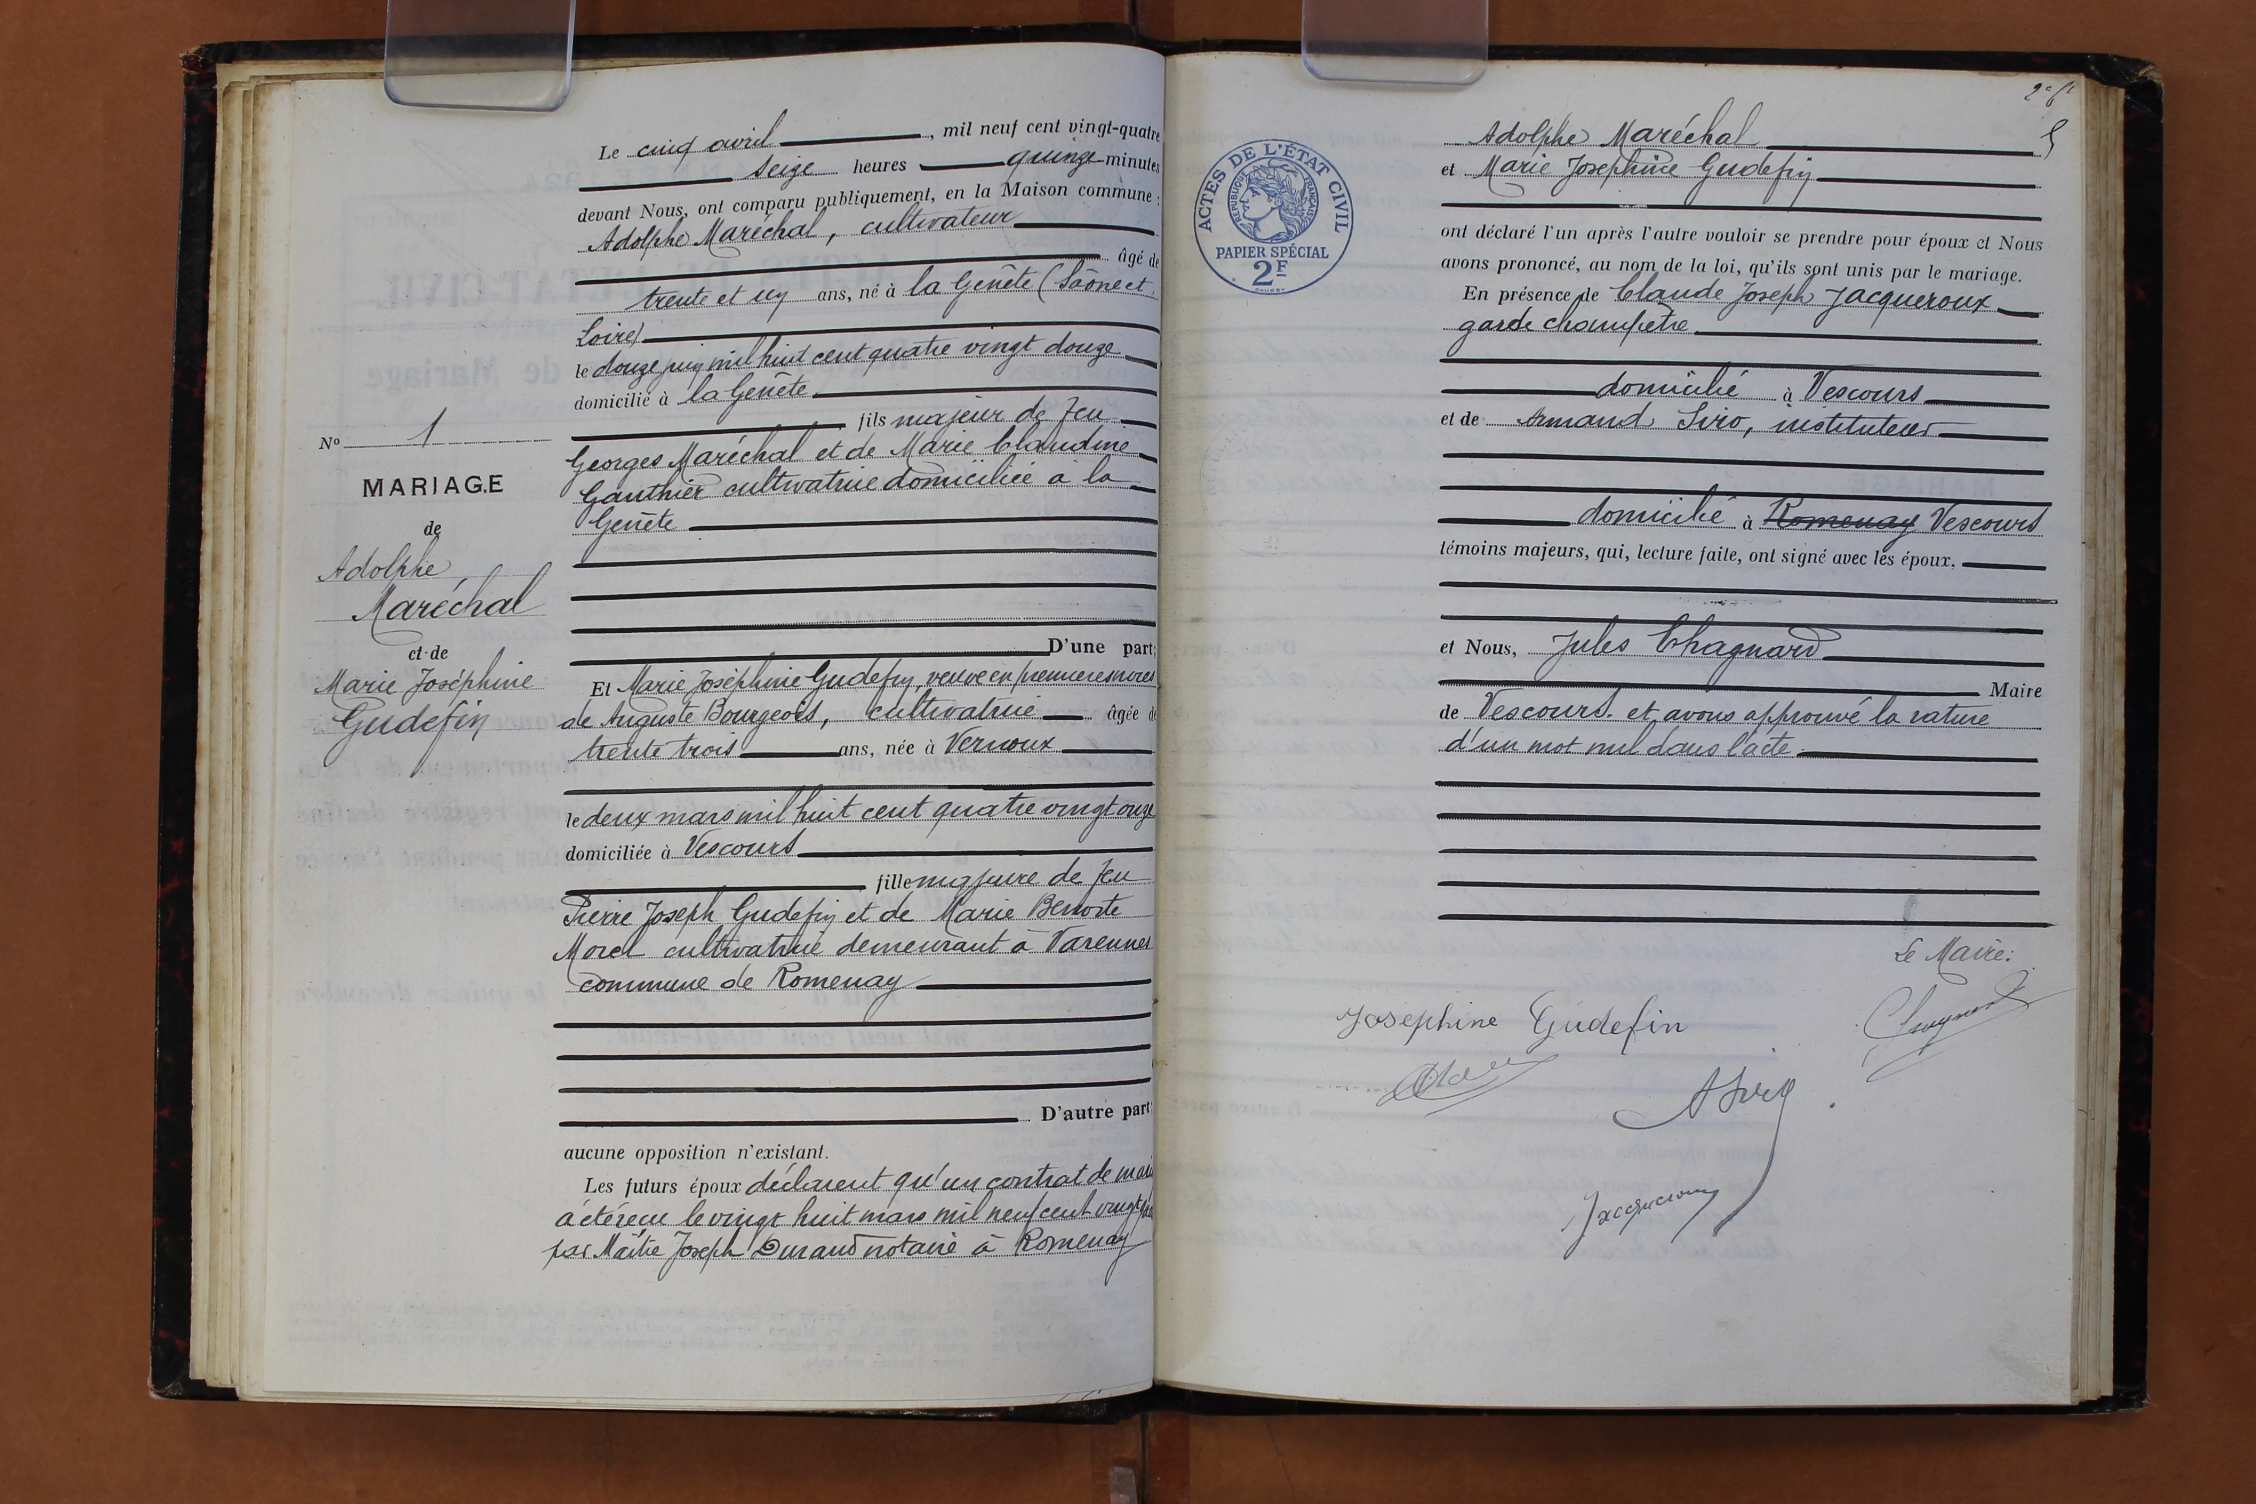 Le cinq avril, mil neuf cent vingt-quatre
seize heures quinze minutes
devant Nous, ont comparu publiquement, en la Maison commune :
Adolphe Maréchal, cultivateur
âgé de
trente et un ans, né à la Genête (Saône et
Loire)
le douze juin mil huit cent quatre vingt douze
domicilié à la Genête
fils majeur de feu
Georges Maréchal et de Marie Claudine
Gauthier cultivatrice domiciliée à la
Genête
D'une part;
Nº 1
MARIAGE
de
Adolphe
Maréchal
et de
Marie Joséphine
Gudefin
Et Marie Joséphine Gudefin, veuve en premieres noces
de Auguste Bourgeois, cultivatrice âgée de
trente trois ans, née à Vernoux
le deux mars mil huit cent quatre vingt onze
domiciliée à Vescours
fille majeure de feu
Pierre Joseph Gudefin et de Marie Benoite
Morel cultivatrice demeurant à Varennes
commune de Romenay
D'autre part;
aucune opposition n'existant.
Les futurs époux déclarent qu'un contrat de
a été reçu le vingt huit mars mil neuf cent
par Maître Joseph Durand notaire à Romenay
2e f
Adolphe Maréchal
et Marie Josephine Gudefin
ACTES DE L'ÉTAT CIVIL
RÉPUBLIQUE FRANÇAISE
PAPIER SPÉCIAL
2F
ont déclaré l'un après l'autre vouloir se prendre pour époux et Nous
avons prononcé, au nom de la loi, qu'ils sont unis par le mariage.
En présence de Claude Joseph Jacqueroux
garde champêtre
domicilié à Vescours
et de Armand Siro, instituteur
domicilié à Romenay Vescours
témoins majeurs, qui, lecture faite, ont signé avec les époux.
et Nous, Jules Chagnard
Maire
de Vescours. et avons approuvé la rature
d'un mot nul dans l'acte.
Le Maire:
Chagnard
Josephine Gudefin
A Siro
Jacqueroux